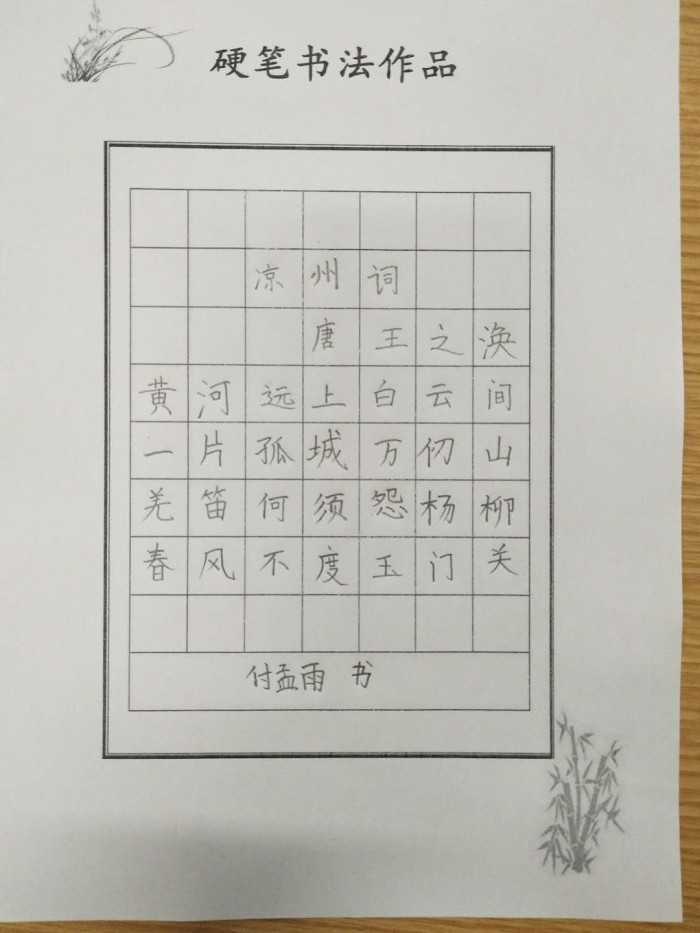 硬笔书法作品
凉州词
唐王之涣
黄河远上白云间
一片孤城万仞山
羌笛何须怨杨柳
春风不度玉门关
付孟雨 书